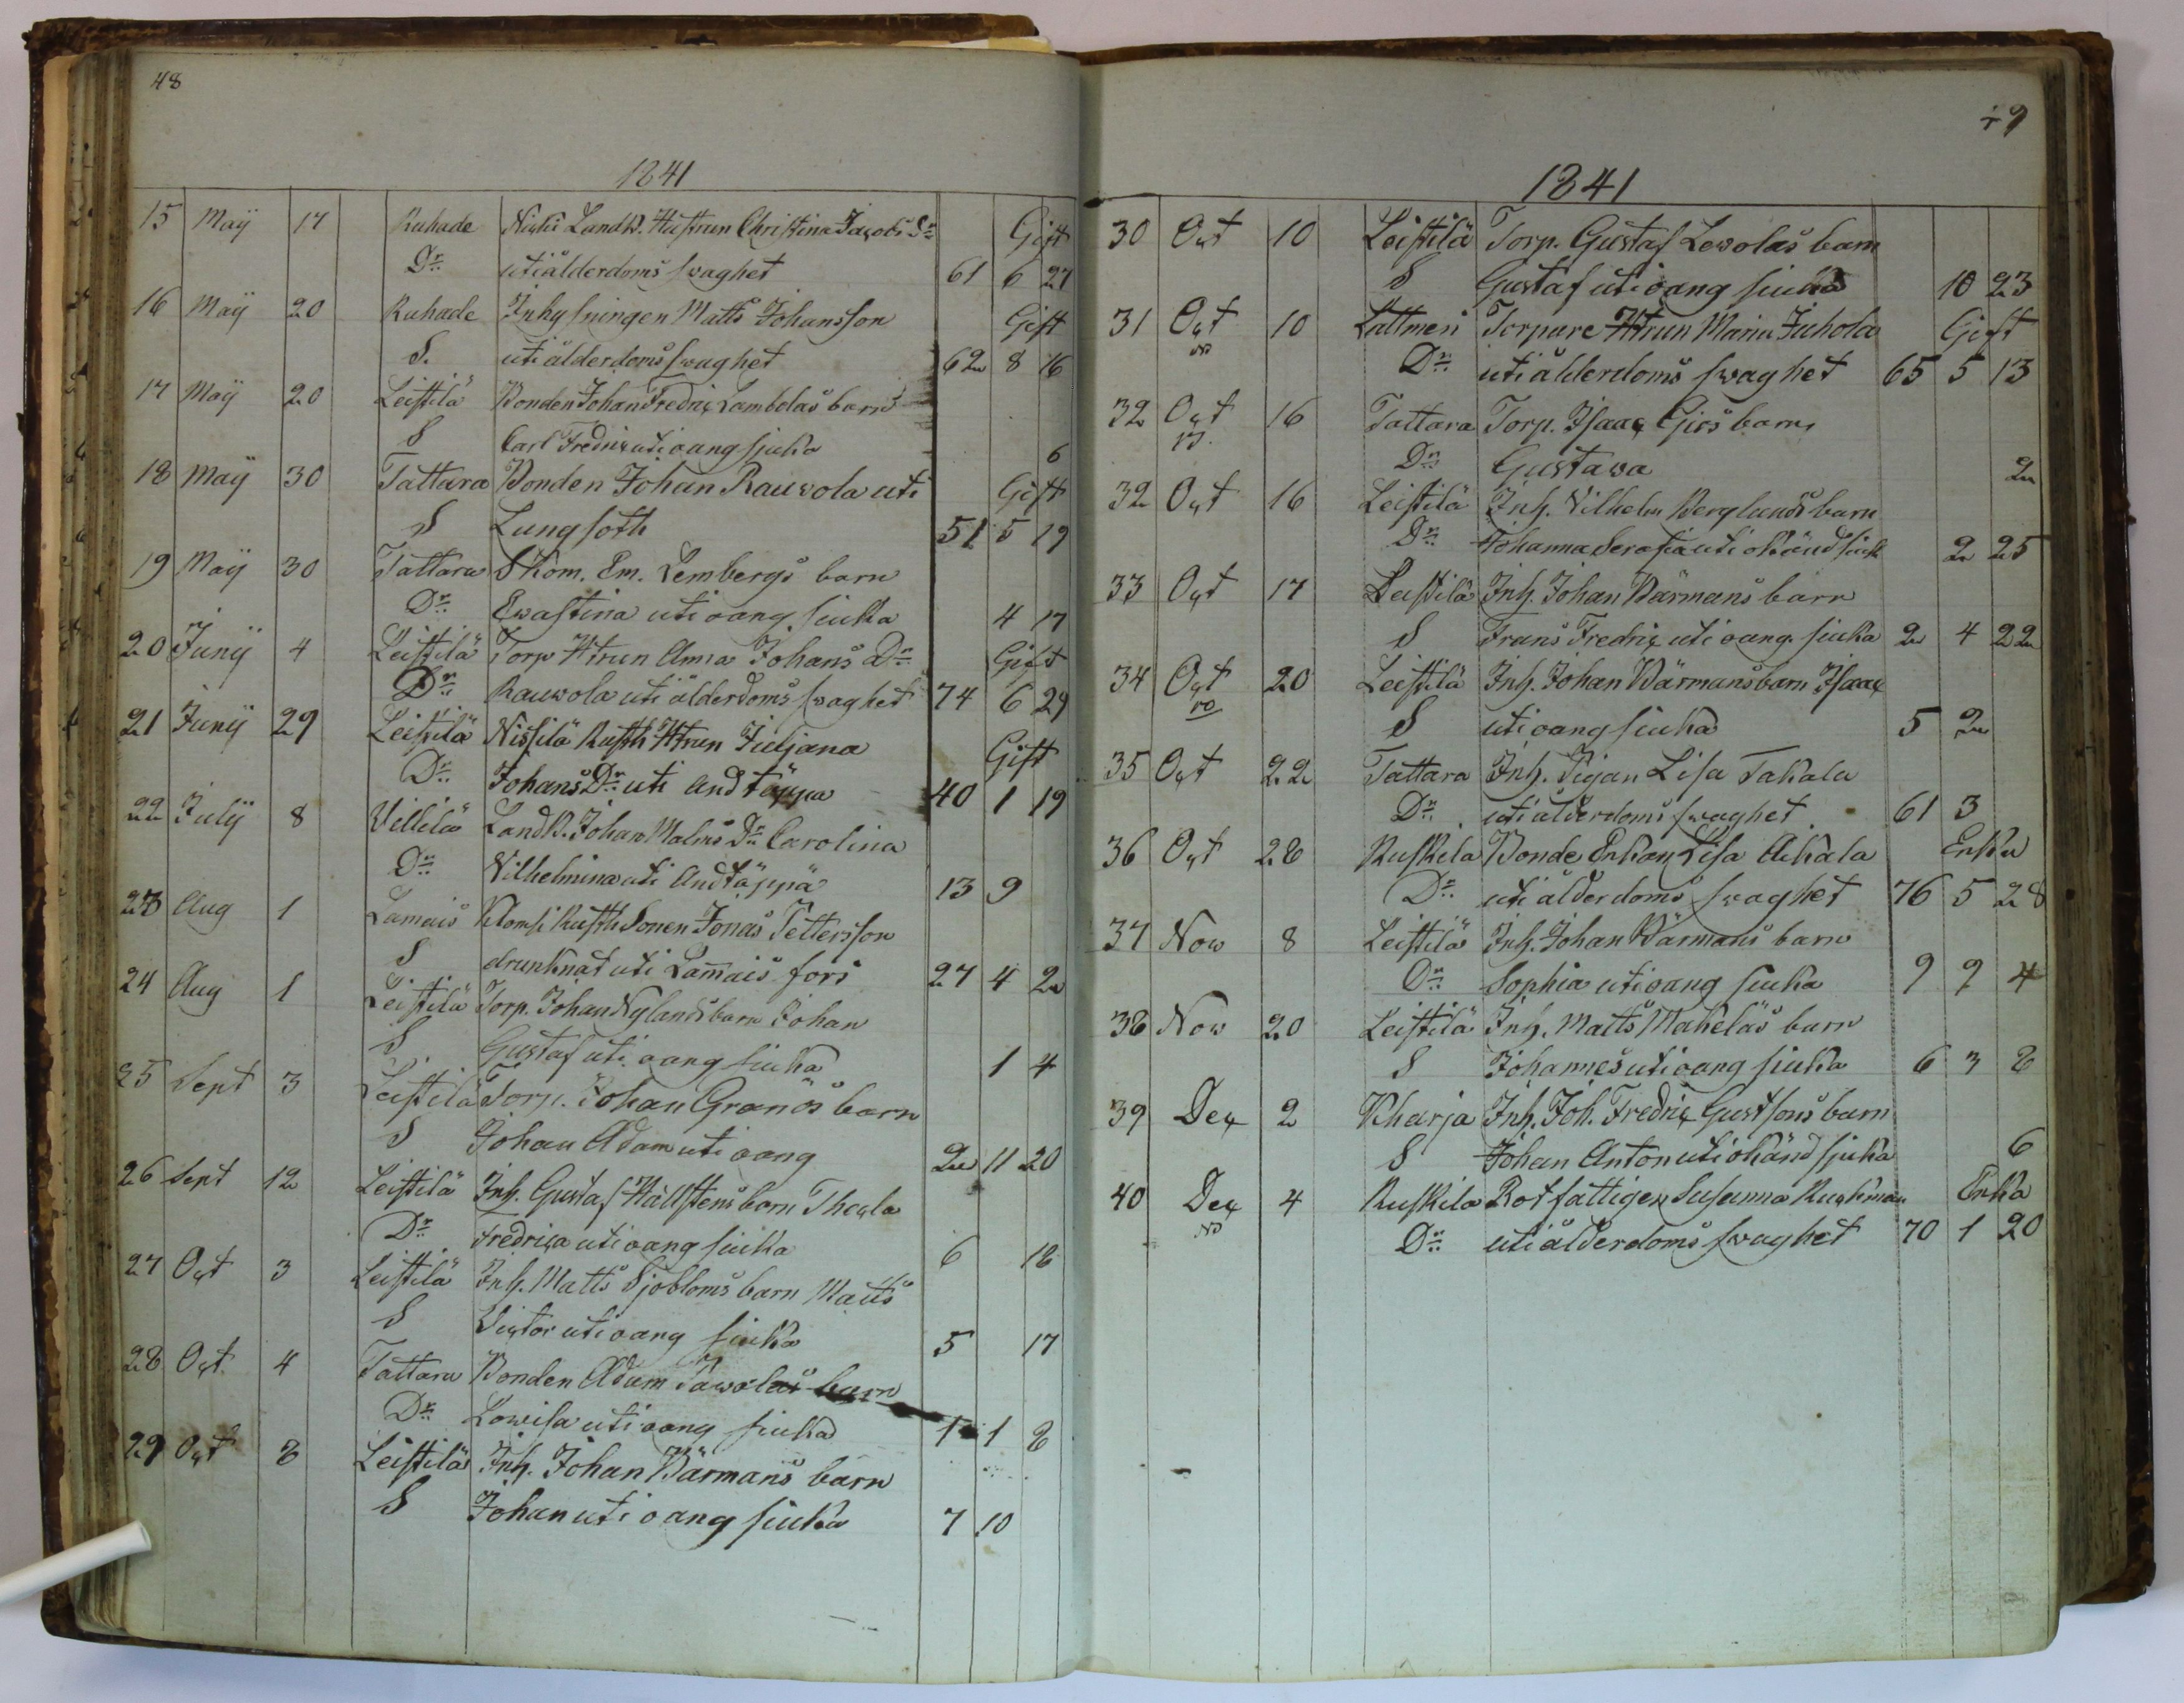 48
1841
15 Maÿ 17 Ruhade Niski Landb. Hustrun Christina Jacobs Dr Gift
Dr uti ålderdoms swaghet 61 6 27
16 Maÿ 20 Ruhade Inhysningen Matts Johansson Gift
S. uti ålderdoms swaghet 62 8 16
17 Maÿ 20 Leistilä Bonden Johan Fredric Lambolas barn
S Carl Fredric uti oang sjuka 6
18 Maÿ 30 Tattara Bonden Johan Rauvola uti Gift
S Lungsoth 51 5 19
19 Maÿ 30 Tattara Skom. Em. Lembergs barn
Dr Ewastina uti oang. siuka 4 17
20 Junÿ 4 Leistilä Torp Htrun Anna Johans Dr Gift
Dr Rauwola uti ålderdoms swaghet 74 6 29
21 Junÿ 29 Leistilä Nissilä Rusth Htrun Juljana Gift
Dr Johans Dr uti andtäppa 40 1 19
22 Julÿ 8 Villilä Landb. Johan Malms Dr Carolina
Dr Vilhelmina uti Andtäppä 13 9
23 Aug 1 Lamais Klomsi Rusth Sonen Jonas Pettersson
S drunknat uti Lamais fors 27 4 2
24 Aug 1 Leistilä Torp. Johan Nylands barn Johan
S Gustaf uti oang siuka 1 4
25 Sept 3 Leistilä Torp. Johan Granös barn
S Johan Adam uti oang 2 11 20
26 Sept 12 Leistilä Inh. Gustaf Hällstens barn Thecla
Dr Fredrica uti oang siuka 6 18
27 Oct 3 Leistilä Inh. Matts Sjobloms barn Matts
S Victor uti oang siuka 5 17
28 Oct 4 Tattara Bonden Adam Jawolas barn
Dr Lowisa uti oang siuka 1 1 8
29 Oct 8 Leistilä Inh. Johan Bärmans barn
S Johan uti oang siuka 7 10
49
1841
30 Oct 10 Leistilä Torp. Gustaf Lewolas barn
S Gustaf uti oang siuka 10 23
31 Oct 10 Lattmeri Torpare Htrun Maria Juhola Gift
Dr uti ålderdoms swaghet 65 5 13
32 Oct 16 Tattara Torp. Isaac Giös barn
Dr Gustava 2
32 Oct 16 Leistilä Inh. Vilhelm Berglunds barn
Dr Johanna Serafia uti okänd siuk 2 25
33 Oct 17 Leistilä Inh. Johan Bärmans barn
S Frans Fredric uti oang. siuka 2 4 22
34 Oct 20 Leistilä Inh. Johan Bärmans barn Isaac
S uti oang siuka 5 2
35 Oct 22 Tattara Inh. Pigan Lisa Takala
Dr uti ålderdoms swaghet 61 3
36 Oct 28 Ruskila Bonde Enkan Lisa Aikala Enka
Dr uti ålderdoms swaghet 76 5 28
37 Now 8 Leistilä Inh. Johan Bärmans barn
Dr Sophia uti oang siuka 9 9 4
38 Now 20 Leistilä Inh. Matts Makeläs barn
S Johannes uti oang siuka 6 3 8
39 Dec 2 Kharja Inh. Joh. Fredric Gustfsons barn
S Johan Anton uti okänd sjuka 6
40 Dec 4 Ruskila Rotfattigen Susanna Ruckman Enka
Dr uti ålderdoms swaghet 70 1 20